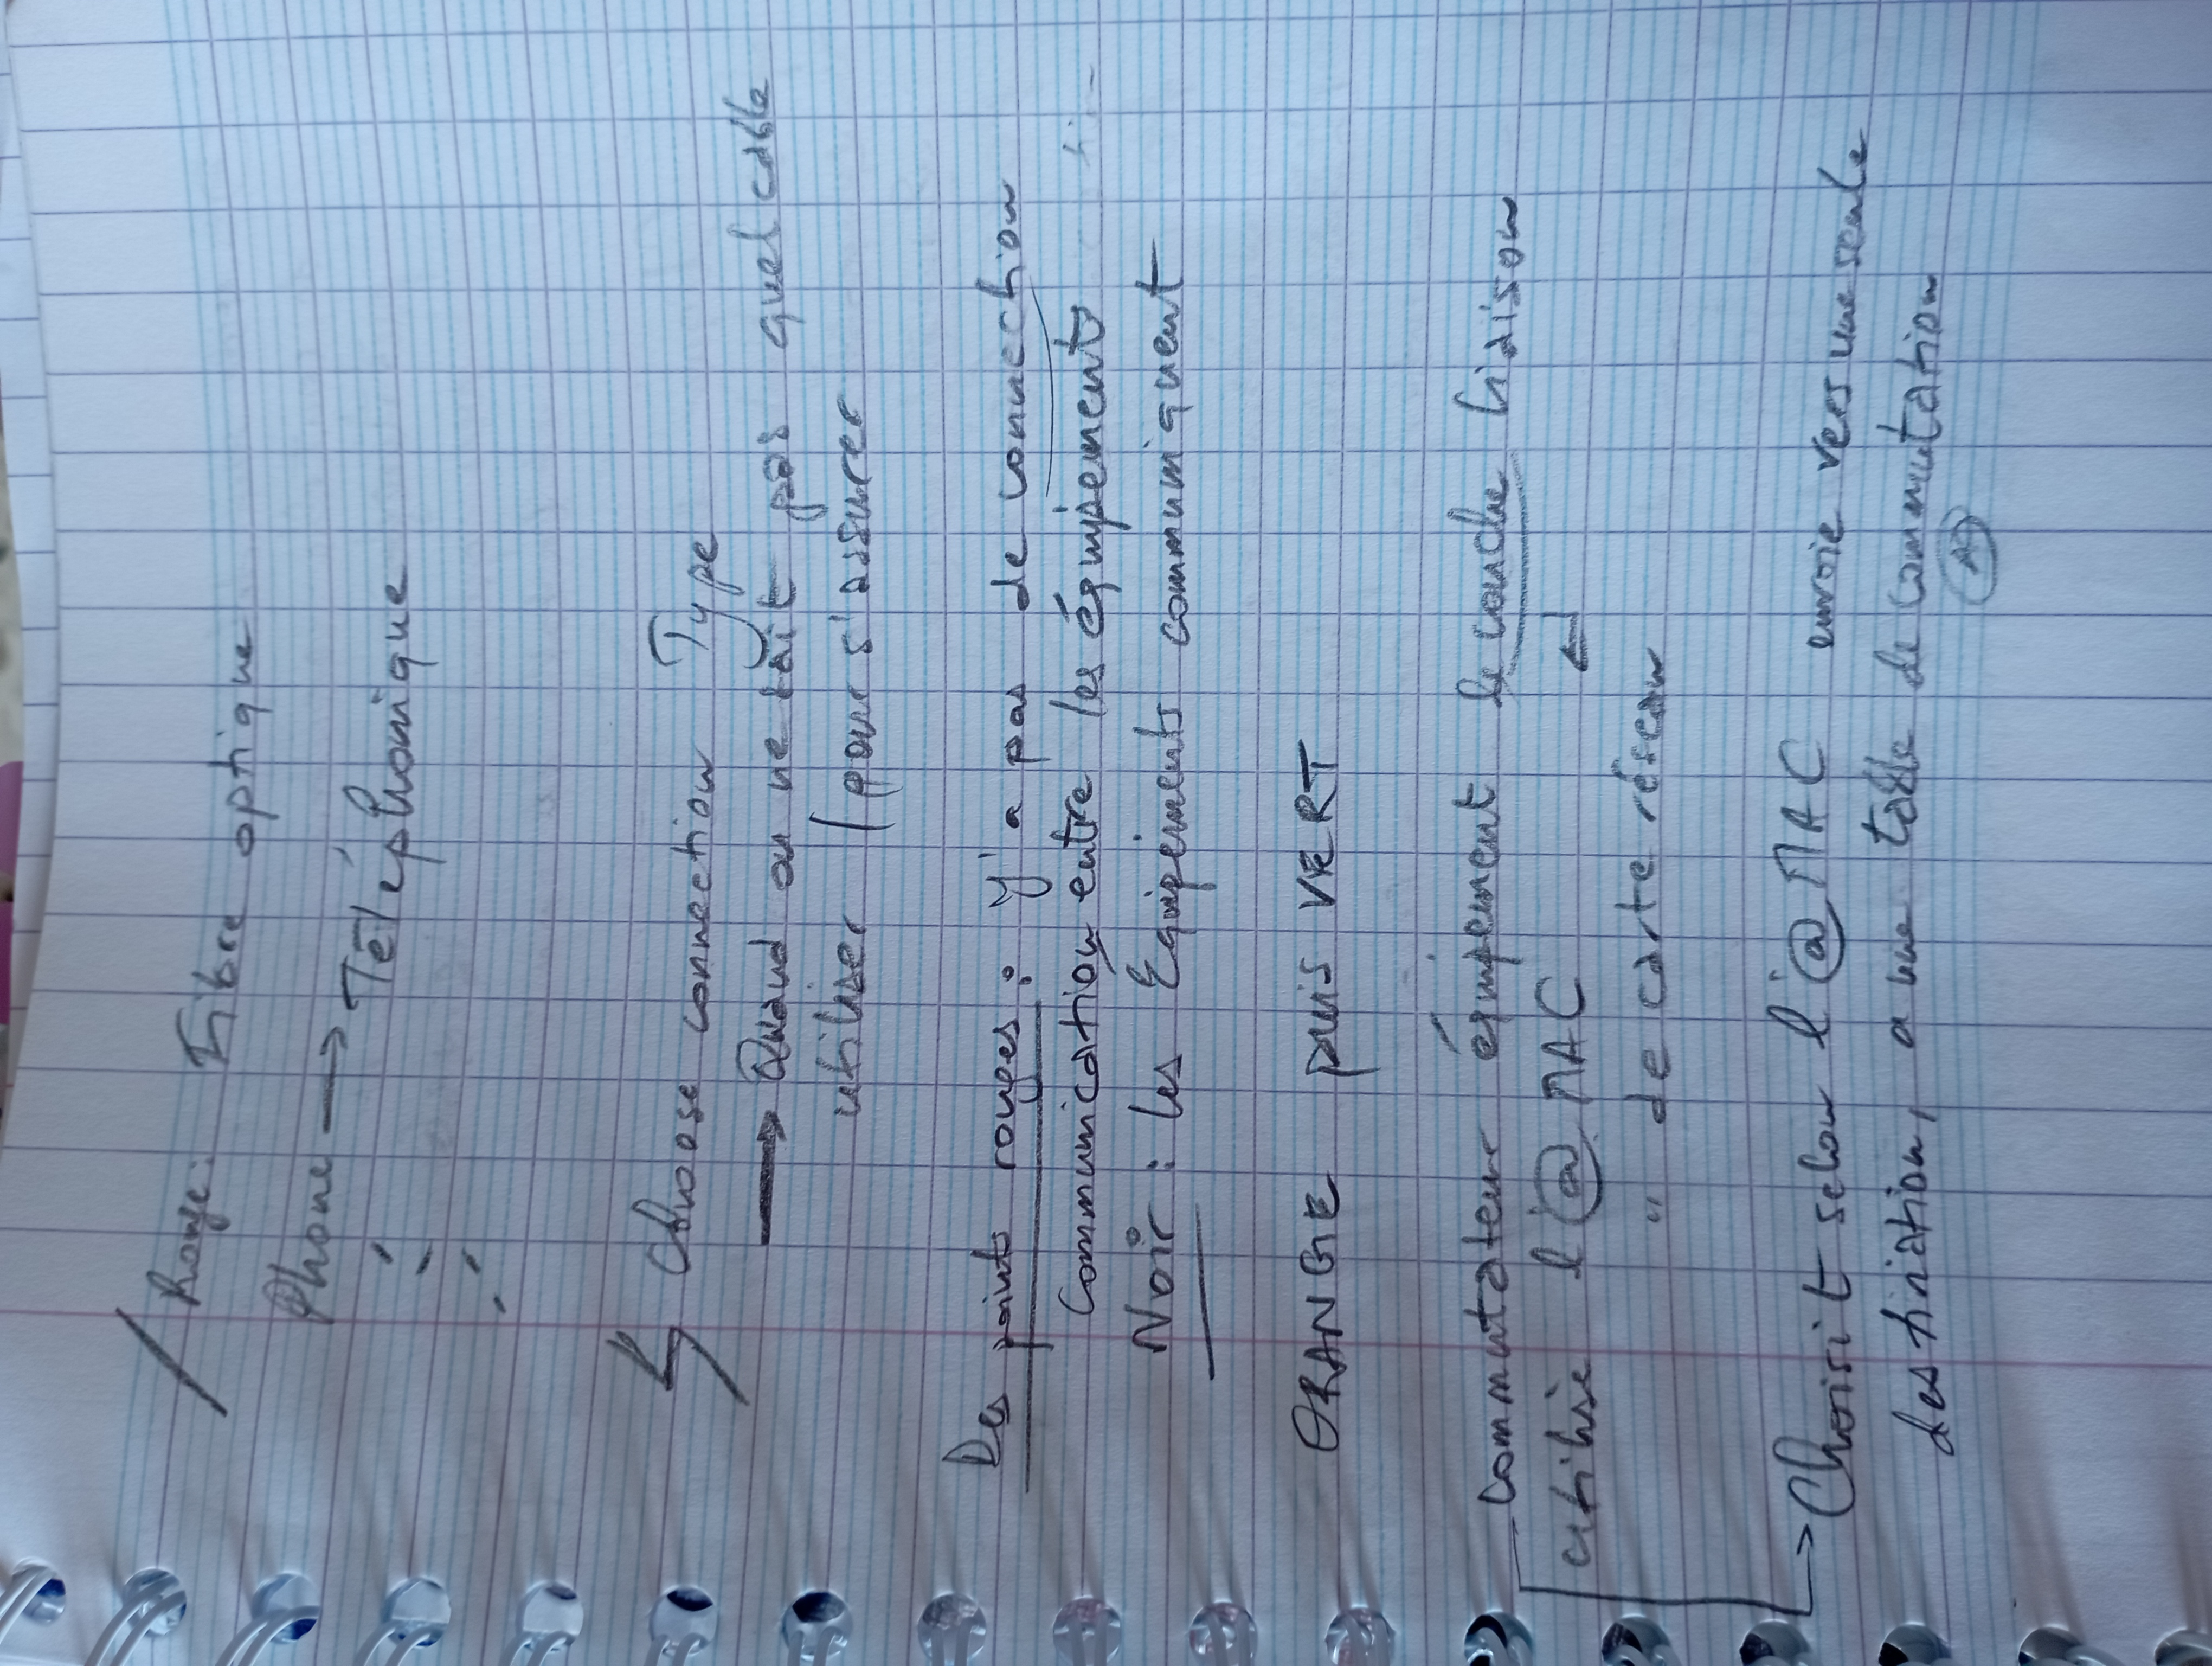 Rouge : Fibre optique
Phone → Téléphonique
Choose connection Type
→ Quand on ne sait pas quel cable
utiliser / pour s'assurer
Des points rouges : Y'a pas de connection
Communication entre les équipement
Noir : les Equipements communiquent
ORANGE puis VERT
commutateur équipement de couche liaison
utilise l'@ MAC
" de carte réseau
→ Choisit selon l'@ MAC envoie vers une seule
destination, a une table de commutation